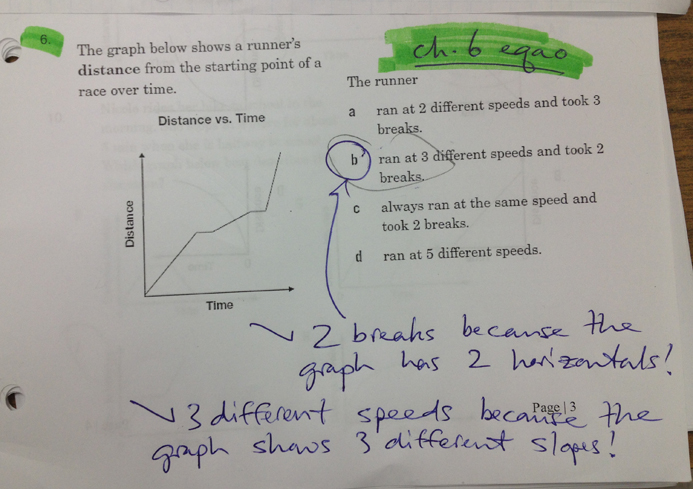 6.
The graph below shows a runner's
distance from the starting point of a
race over time.
Distance vs. Time
Distance
Time
ch. 6 eqao
The runner
a ran at 2 different speeds and took 3
breaks.
b ran at 3 different speeds and took 2
breaks.
c always ran at the same speed and
took 2 breaks.
d ran at 5 different speeds.
2 breaks because the
graph has 2 horizontals!
3 different speeds because the
Page | 3
graph shows 3 different slopes!